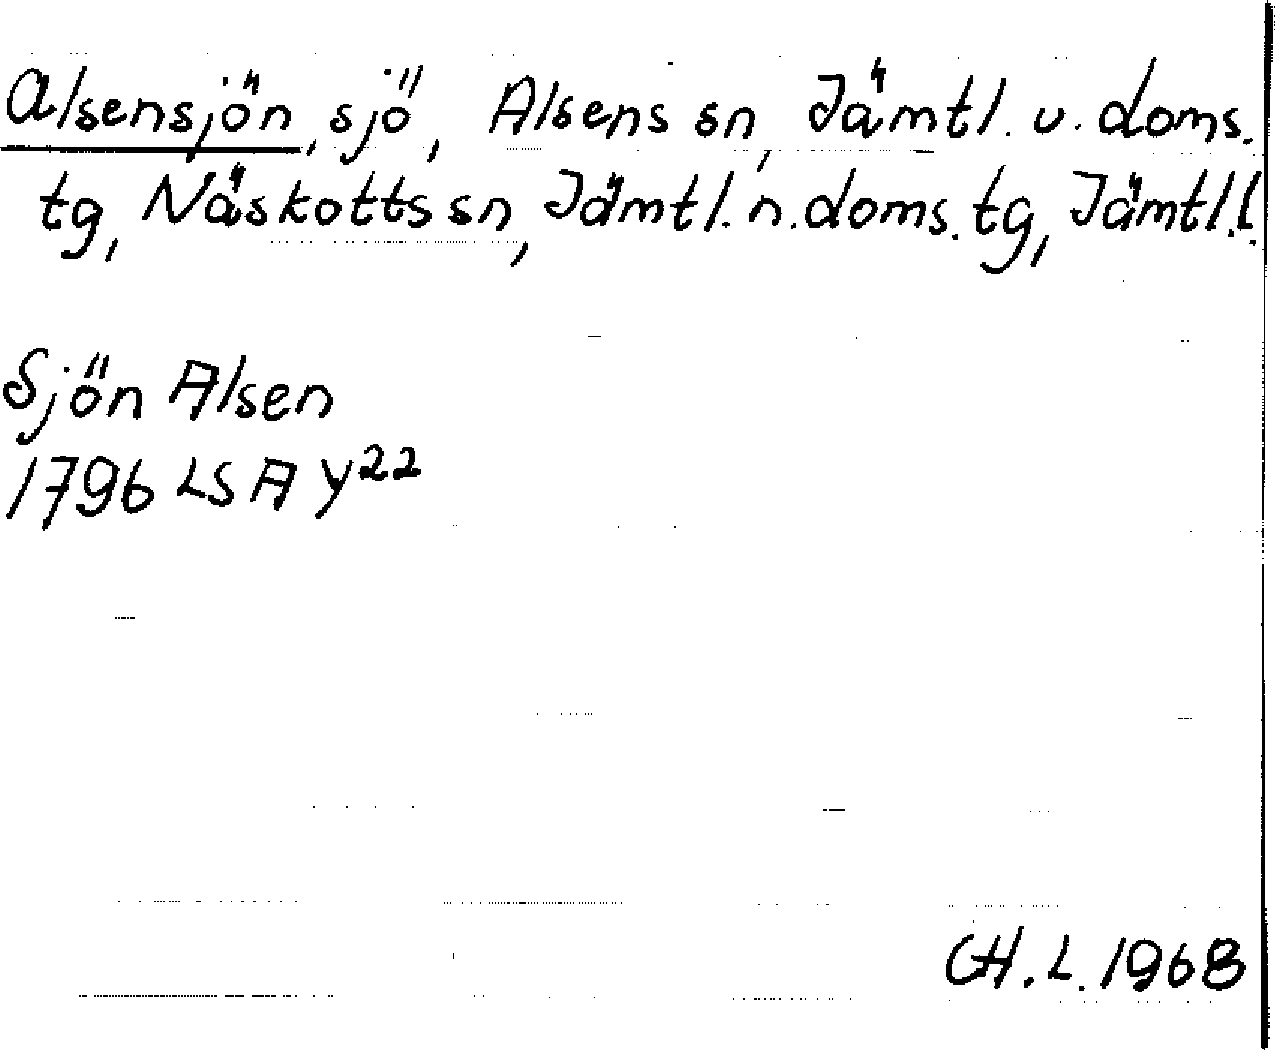 Alsensjön, sjö, Alsens sn, Jämtl. v. doms.
tg, Näskotts sn, Jämtl. n. doms. tg, Jämtl. l.
Sjön Alsen
1796 LSA Y²²
G.H.L. 1968